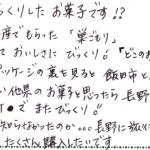 くりしたお菓子です!?
産でもらった「巣ごもり」
て おいしさに びっくり♪「どこのお
パッケージの裏を見ると 飯田市と
い他県のお菓子と思ったら長野
町●で またびっくり!!
知らなかったのか…長野に旅行
たくさん購入したいです